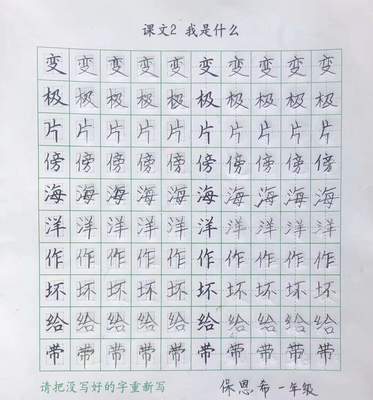 课文2 我是什么
变 变 变 变 变 变 变 变 变
极 极 极 极 极 极 极 极 极
片 片 片 片 片 片 片 片 片
傍 傍 傍 傍 傍 傍 傍 傍 傍
海 海 海 海 海 海 海 海 海
洋 洋 洋 洋 洋 洋 洋 洋 洋
作 作 作 作 作 作 作 作 作
坏 坏 坏 坏 坏 坏 坏 坏 坏
给 给 给 给 给 给 给 给 给
带 带 带 带 带 带 带 带 带
请把没写好的字重新写 保恩希 一年级